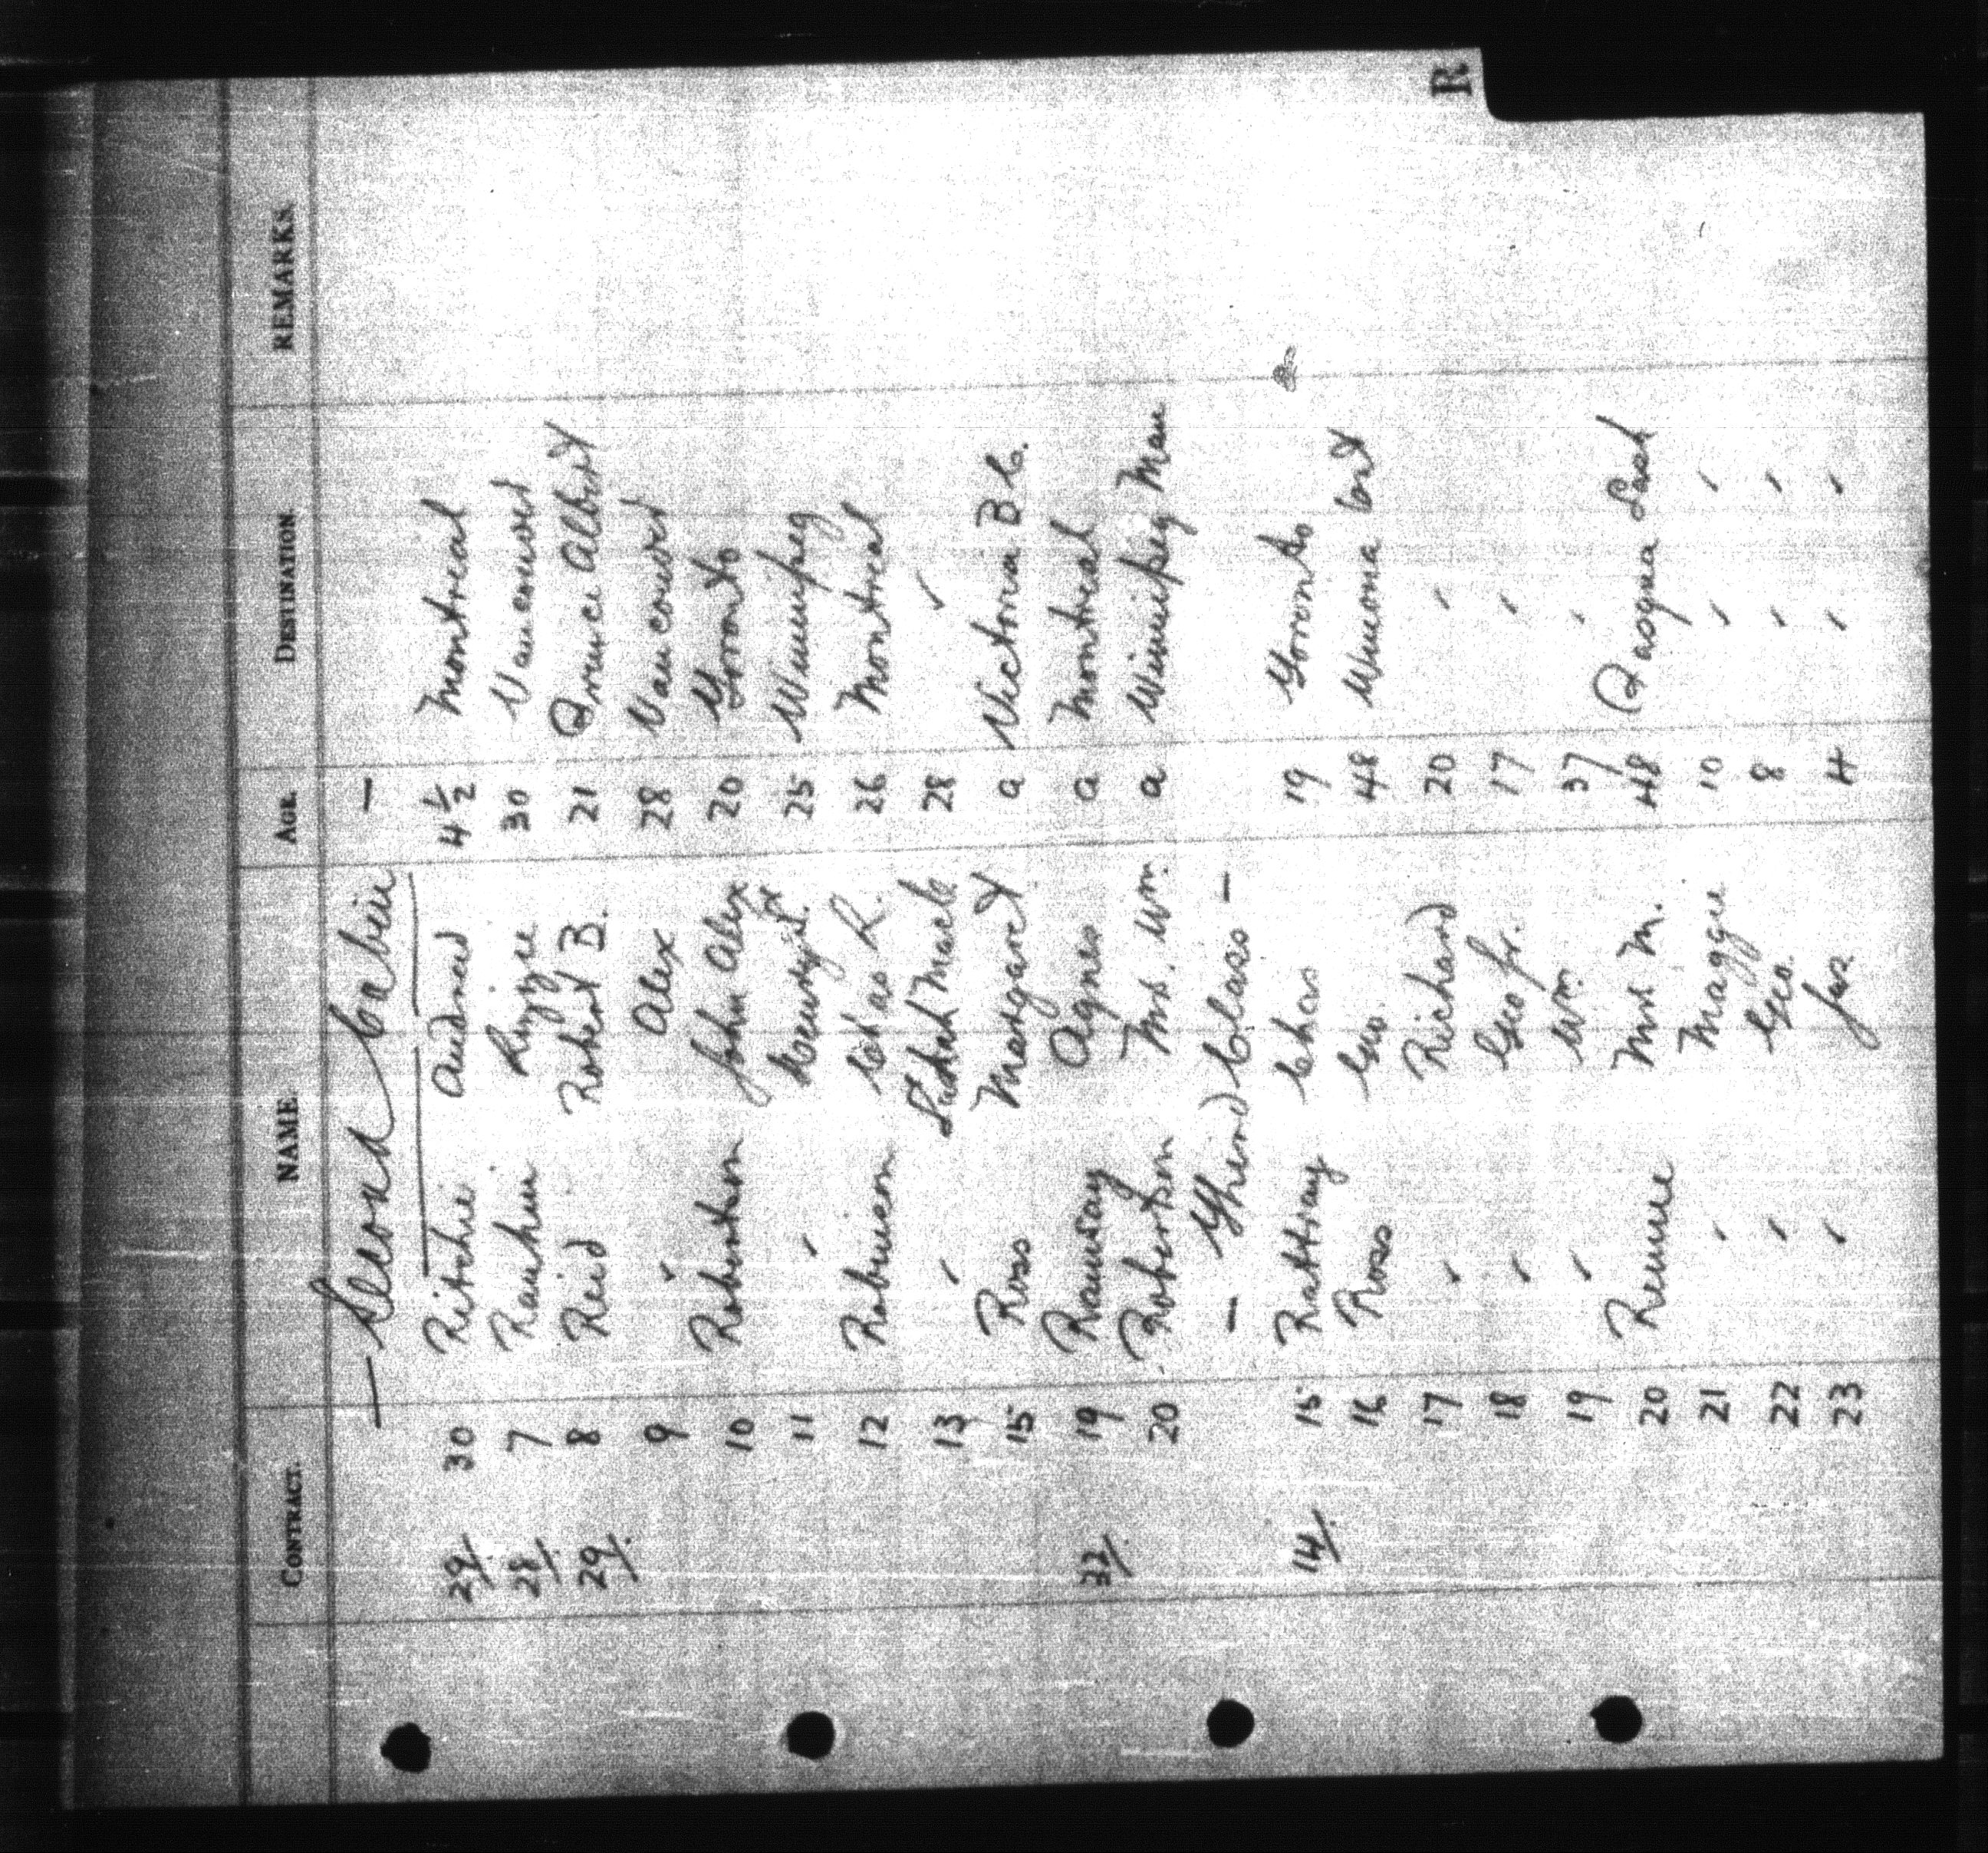 R
CONTRACT. NAME. AGE. DESTINATION REMARKS.
— Second Cabin —
29/. 30 Ritchie Audned 4 1/2 Montreal
28/. 7 Rankin Lizzie 30 Vancouver
29/. 8 Reid Robert B. 21 Prince Albert
9 " Alex 28 Vancouver
10 Robertson John Alex 20 Toronto
11 " 25 Winnipeg
12 Robinson Chas R. 26 Montreal
13 " 28 "
15 Ross Margaret a Victoria B C.
32/. 19 Ramsay Agnes a Montreal
20 Robertson Mrs. Wm. a Winnipeg Man
— Third Class —
14/. 15 Rattray Chas 19 Toronto
16 Ross Geo. 48 Winona Ont
17 " Richard 20 "
18 " Geo Jr. 17 "
19 " Wm. 37 "
20 Rennie Mrs M. 48 Pasqua Sask
21 " Maggie 10 " "
22 " Geo. 8 " "
23 " Jas 4 " "